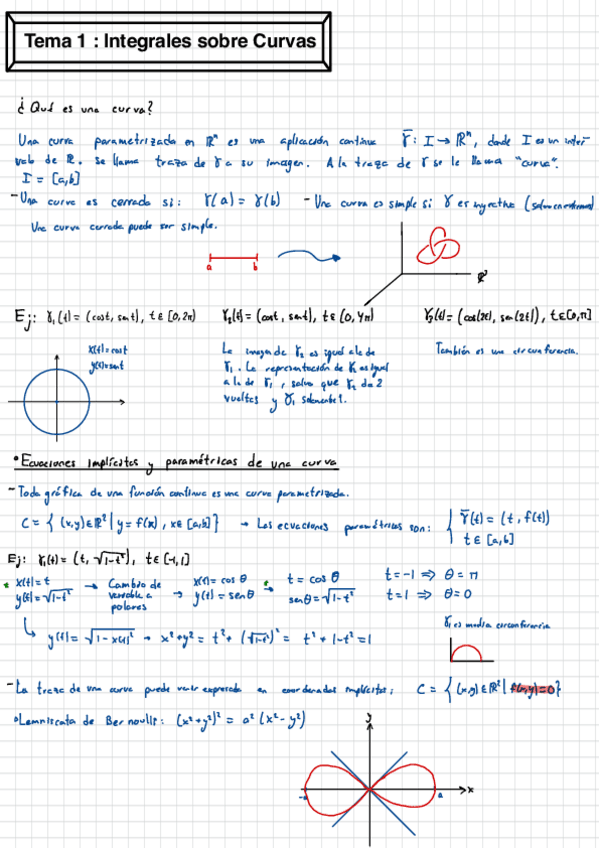 Tema 1 : Integrales sobre Curvas
¿Qué es una curva?
Una curva parametrizada en ℝⁿ es una aplicación continua γ̄ : I → ℝⁿ, donde I es un inter-
valo de ℝ. Se llama traza de γ a su imagen. A la traza de γ se le llama "curva".
I = [a,b]
- Una curva es cerrada si: γ(a) = γ(b) - Una curva es simple si γ es inyectiva (salvo en extremos).
Una curva cerrada puede ser simple.
a b
Ej: γ₁(t) = (cost, sent), t ∈ [0, 2π) γ₂(t) = (cost, sent), t ∈ [0, 4π) γ₃(t) = (cos(2t), sen(2t)), t ∈ [0, π]
x(t) = cost
y(t) = sent
La imagen de γ₂ es igual a la de
γ₁. La representación de es igual
a la de γ₁, salvo que γ₂ da 2
vueltas y γ₁ solamente 1.
También es una circunferencia.
• Ecuaciones implícitas y paramétricas de una curva
- Toda gráfica de una función continua es una curva parametrizada.
C = { (x,y) ∈ ℝ² | y = f(x), x ∈ [a,b] } → Las ecuaciones paramétricas son: { γ̄(t) = (t, f(t))
t ∈ [a,b]
Ej: γ₁(t) = (t, √1-t²), t ∈ [-1,1]
* x(t) = t
y(t) = √1-t²
→ Cambio de
variable a
polares
→ x(t) = cos θ
y(t) = sen θ
* → t = cos θ
sen θ = √1-t²
t = -1 ⇒ θ = π
t = 1 ⇒ θ = 0
y(t) = √1-x(t)² → x² + y² = t² + (√1-t²)² = t² + 1 - t² = 1
γ₁ es media circunferencia
- La traza de una curva puede venir expresada en coordenadas implícitas: C = { (x,y) ∈ ℝ² | f(x,y) = 0 }
• Lemniscata de Bernoulli: (x² + y²)² = a² (x² - y²)
y
-a a x